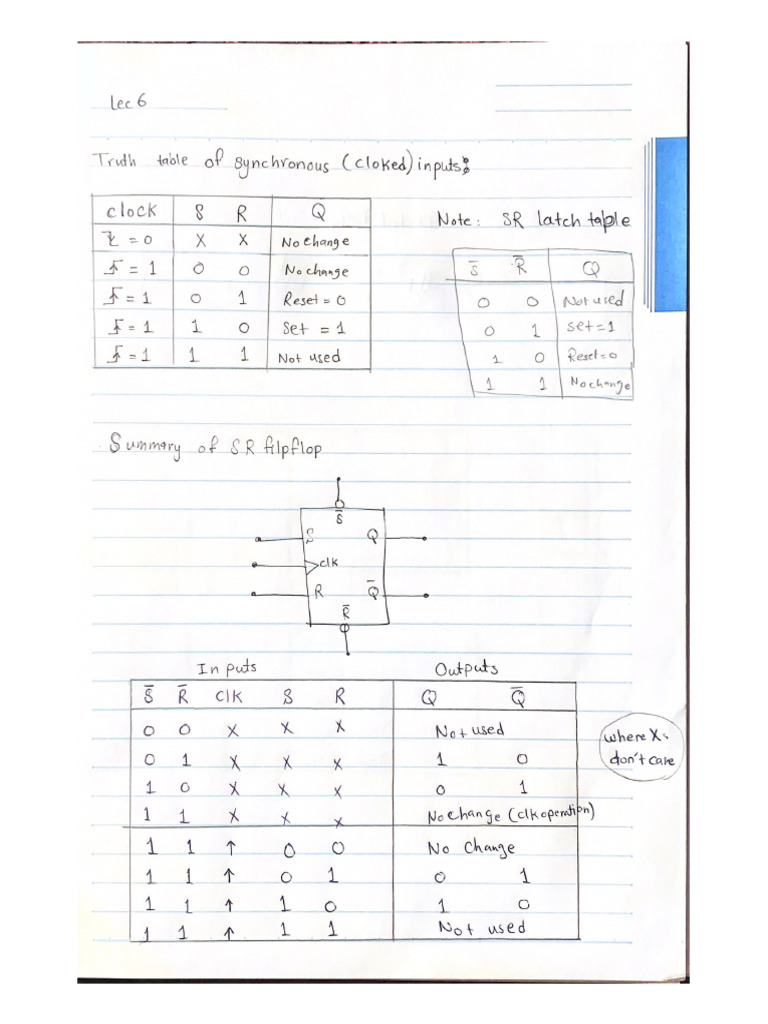 Lec 6
Truth table of synchronous (cloked) inputs:
clock S R Q̄
= 0 X X No change
= 1 0 0 No change
= 1 0 1 Reset = 0
= 1 1 0 Set = 1
= 1 1 1 Not used
Note: SR latch table
S̄ R̄ Q
0 0 Not used
0 1 Set = 1
1 0 Reset = 0
1 1 No change
Summary of SR filpflop
S̄
S Q
clk
R Q̄
R̄
Inputs Outputs
S̄ R̄ Clk S R Q Q̄
0 0 X X X Not used
0 1 X X X 1 0
1 0 X X X 0 1
1 1 X X X No change (clk operation)
1 1 ↑ 0 0 No Change
1 1 ↑ 0 1 0 1
1 1 ↑ 1 0 1 0
1 1 ↑ 1 1 Not used
where X:
don't care